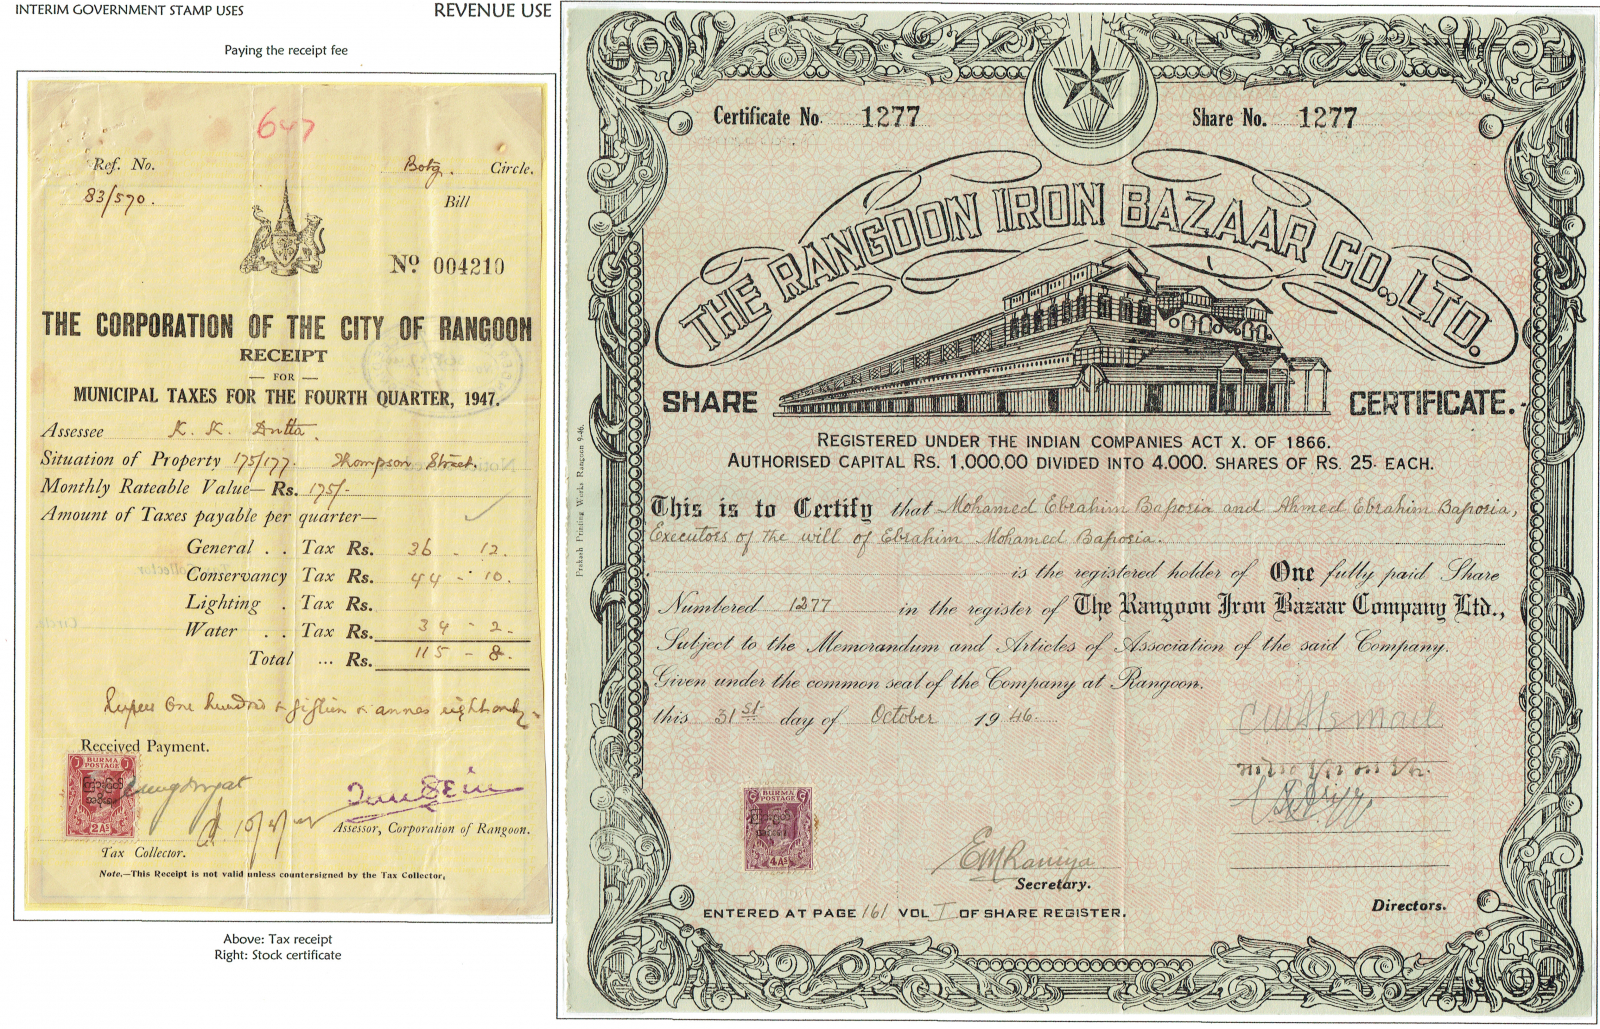 INTERIM GOVERNMENT STAMP USES
REVENUE USE
Paying the receipt fee
647
Ref. No.
Botg. Circle.
83/570.
Bill
No. 004210
THE CORPORATION OF THE CITY OF RANGOON
RECEIPT
— FOR —
MUNICIPAL TAXES FOR THE FOURTH QUARTER, 1947.
Assessee K. K. Dutta.
Situation of Property 175/177. Thompson Street.
Monthly Rateable Value— Rs. 175/-
Amount of Taxes payable per quarter—
General . . Tax Rs. 36 - 12.
Conservancy Tax Rs. 44 - 10.
Lighting . Tax Rs.
Water . . Tax Rs. 34 - 2.
Total ... Rs. 115 - 8.
Rupees One hundred & fifteen & annas eight only
Received Payment.
BURMA
POSTAGE
2As
Assessor, Corporation of Rangoon.
Tax Collector.
Note.—This Receipt is not valid unless countersigned by the Tax Collector,
Above: Tax receipt
Right: Stock certificate
Certificate No. 1277
Share No. 1277
THE RANGOON IRON BAZAAR CO., LTD.
SHARE CERTIFICATE.
REGISTERED UNDER THE INDIAN COMPANIES ACT X. OF 1866.
AUTHORISED CAPITAL RS. 1,000.00 DIVIDED INTO 4.000. SHARES OF RS. 25. EACH.
This is to Certify that Mohamed Ebrahim Baporia and Ahmed Ebrahim Baporia,
Executors of the will of Ebrahim Mohamed Baporia.
is the registered holder of One fully paid Share
Numbered 1277 in the register of The Rangoon Iron Bazaar Company Ltd.,
Subject to the Memorandum and Articles of Association of the said Company.
Given under the common seal of the Company at Rangoon.
this 31st day of October 1946.
BURMA
POSTAGE
4As
EMRaniya
Secretary.
Directors.
ENTERED AT PAGE 161 VOL I OF SHARE REGISTER.
Prakash Printing Works Rangoon 9-46.